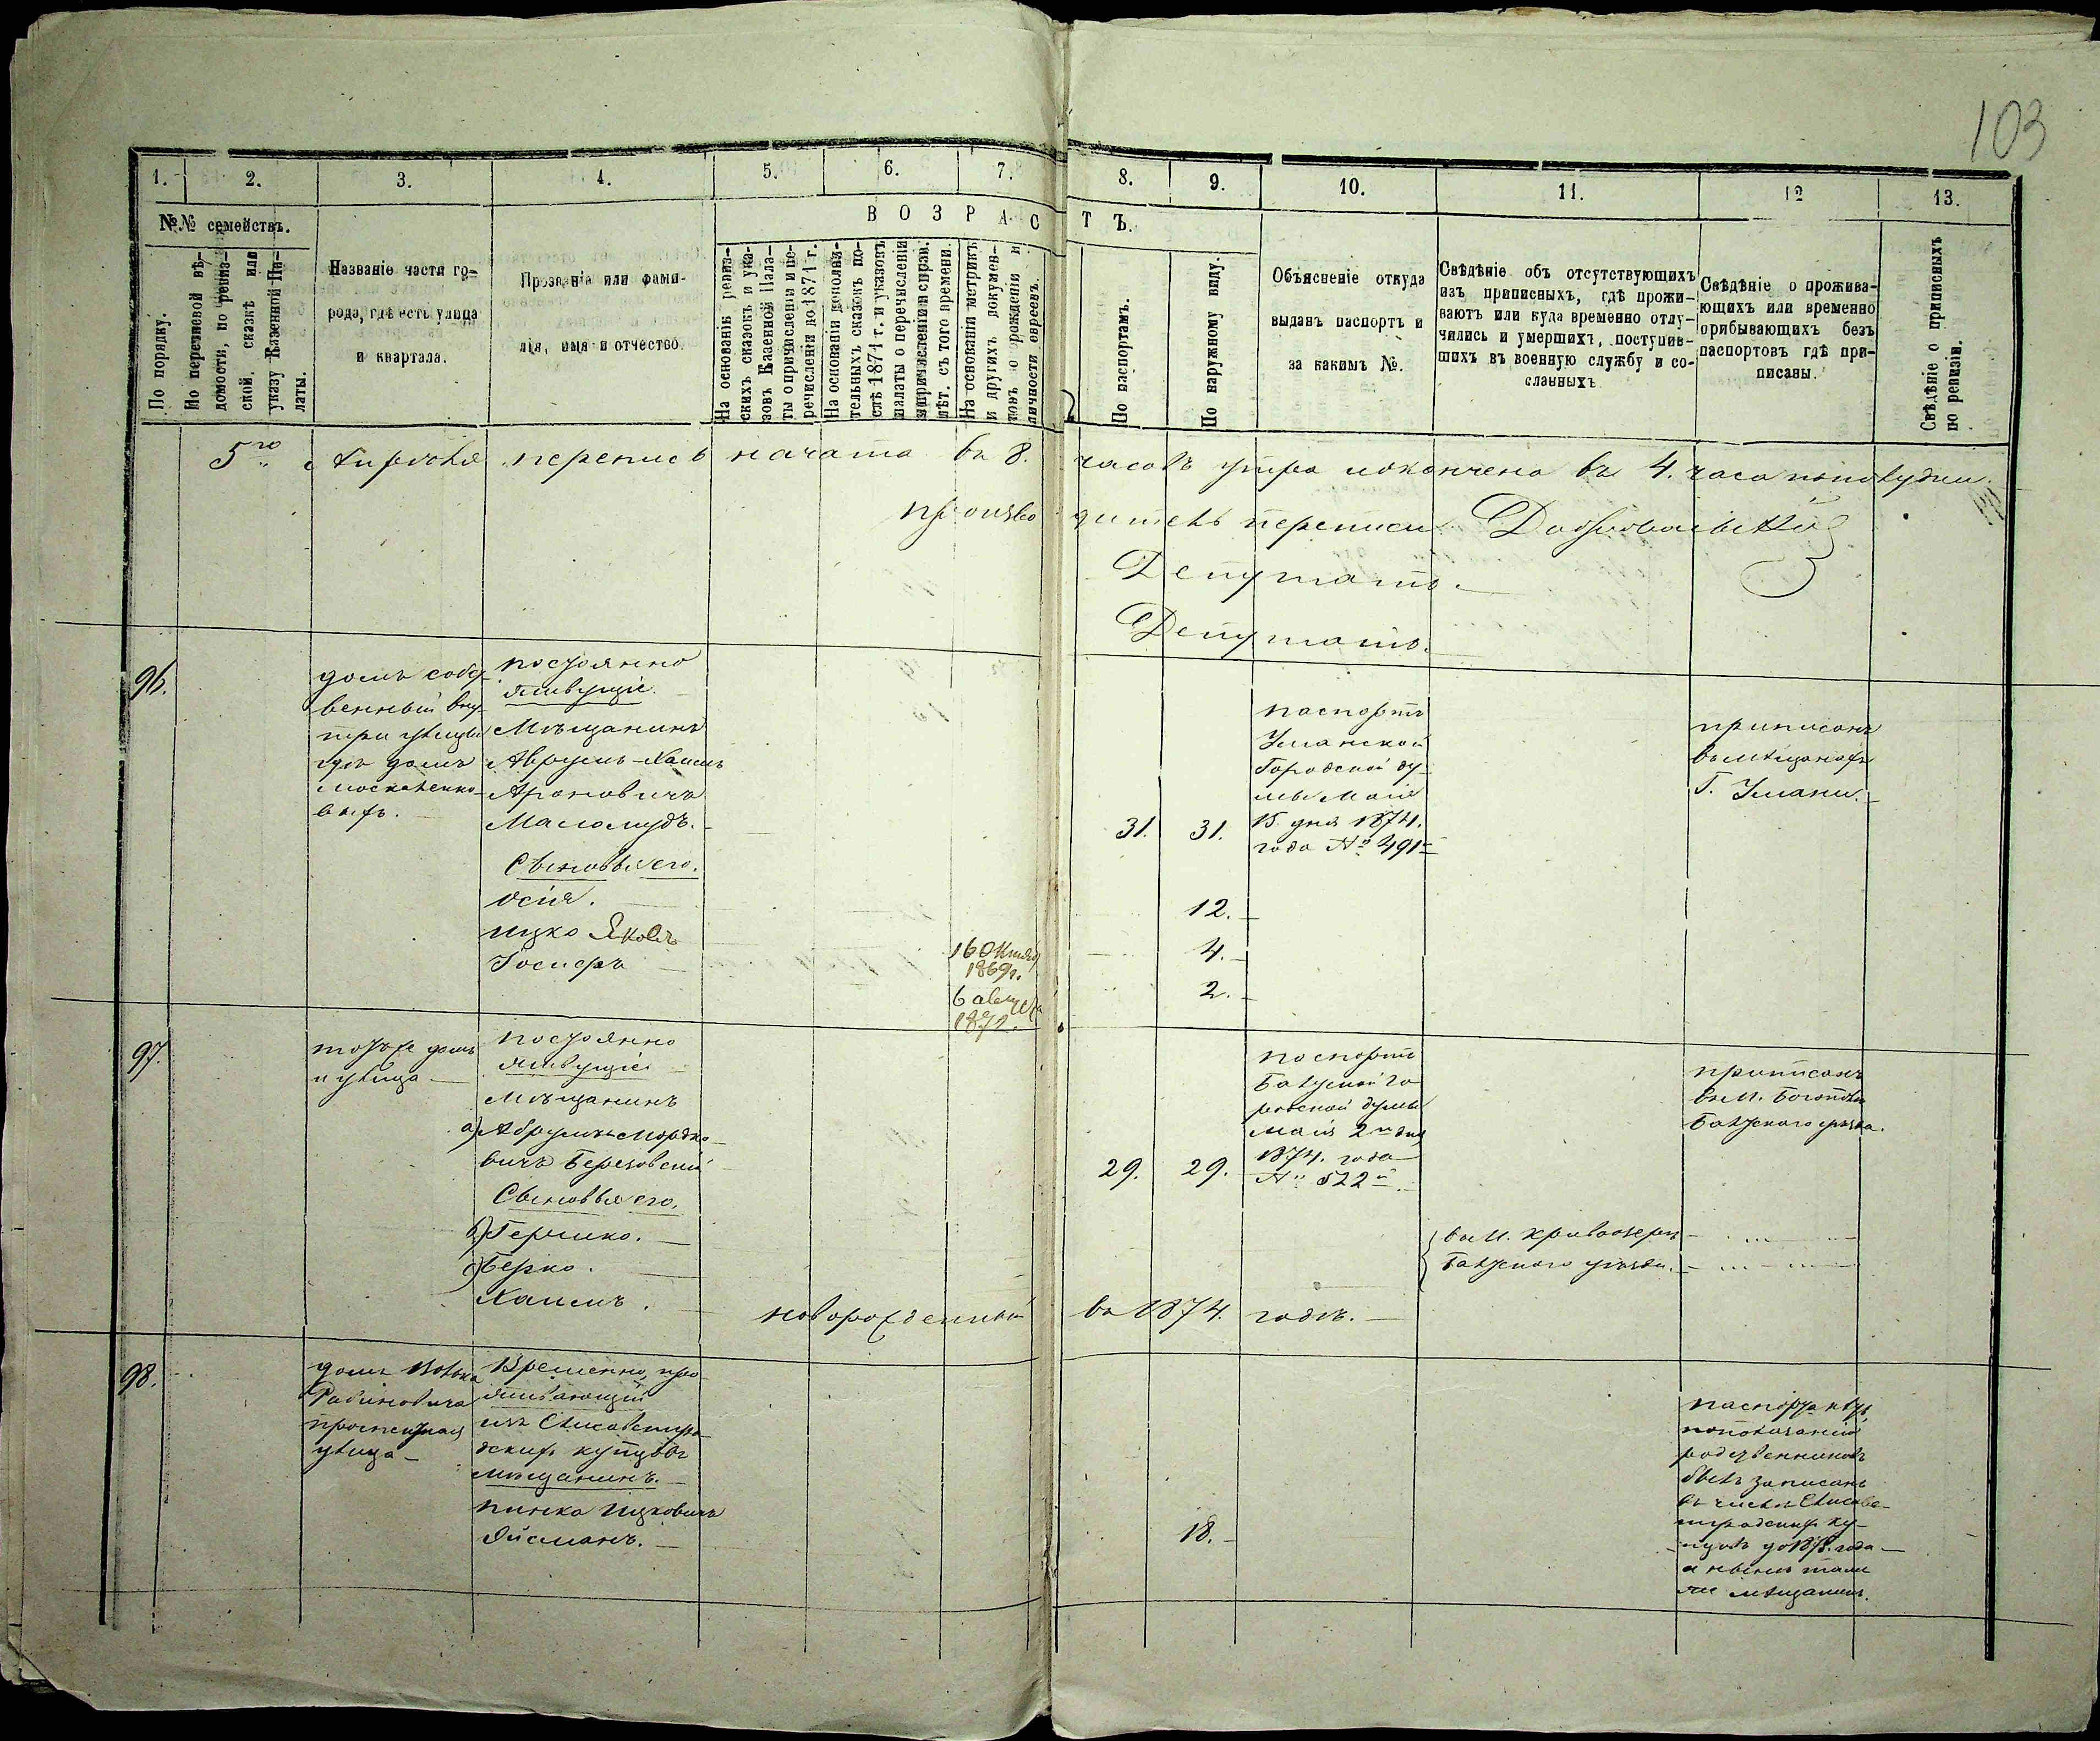 103
1. 2. 3. 4. 5. 6. 7. 8. 9. 10. 11. 12 13.
№№ семействъ.
В О З Р А С Т Ъ.
По порядку.
По перечневой вѣ-
домости, по ревиз-
ской сказкѣ или
указу Казенной Па-
латы.
Названіе части го-
рода, гдѣ есть улица
и квартала.
Прозваніе или фами-
лія, имя и отчество.
На основаніи ревиз-
скихъ сказокъ и ука-
зовъ Казенной Пала-
ты о причисленіи и пе-
речисленіи по 1871 г.
На основаніи дополни-
тельныхъ сказокъ по-
слѣ 1871 г. и указовъ
палаты о перечисленіи
и причисленіи и справ.
лѣт. съ того времени.
На основаніи метрикъ
и другихъ докумен-
товъ о рожденіи и
личности евреевъ.
По паспортамъ.
По наружному виду.
Объясненіе откуда
выданъ паспортъ и
за какимъ №.
Свѣдѣніе объ отсутствующихъ
изъ приписныхъ, гдѣ прожи-
ваютъ или куда временно отлу-
чились и умершихъ, поступив-
шихъ въ военную службу и со-
сланныхъ
Свѣдѣніе о прожива-
ющихъ или временно
прибывающихъ безъ
паспортовъ гдѣ при-
писаны.
Свѣдѣніе о приписныхъ
по ревизіи.
5го Апрѣля перепись начата въ 8. часовъ утра и окончена въ 4. часа пополудни.
Производитель переписи
Депутатъ.
Депутатъ.
96.
домъ собст-
венный вну-
три улицы
гдѣ домъ
выхъ.
постоянно
живущіе
Мѣщанинъ
Аврумъ-Хаимъ
Ароновичъ
Маломудъ.
Сыновья его.
Осія.
Ицко Яковъ
Іосифъ
16 Октября
1869г.
6 августа
1872.
31. 31.
12.
4.
2.
паспортъ
Уманской
Городской ду-
мы Маія
15 дня 1874.
года № 491й
приписанъ
въ мѣщанахъ
Г. Умани.
97.
тотъ же домъ
и улица
постоянно
живущіе
Мѣщанинъ
а) Абрумъ Мордко-
вичъ Березовскій
Сыновья его.
б) Гершко.
с) Берко.
Хаимъ.
29. 29.
паспортъ
Балтской го-
родской думы
Маія 2го дня
1874. года
№ 522й
приписанъ
въ М. Богополь
Балтскаго уѣзда.
въ М. Кривоозеръ
Балтскаго уѣзда.
новорожденный въ 1874. годѣ.
98.
домъ Волька
Рабиновича
улица
Временно про
живающій
изъ Елисаветгра-
дскихъ купцовъ
мѣщанинъ.
Пинка Ицковичъ
Айсманъ.
18.
паспорта нѣтъ,
по показанію
родственниковъ
былъ записанъ
въ числѣ Елисаве-
тградскихъ ку-
пцовъ до года
а нынѣ тамъ
же мѣщанинъ.